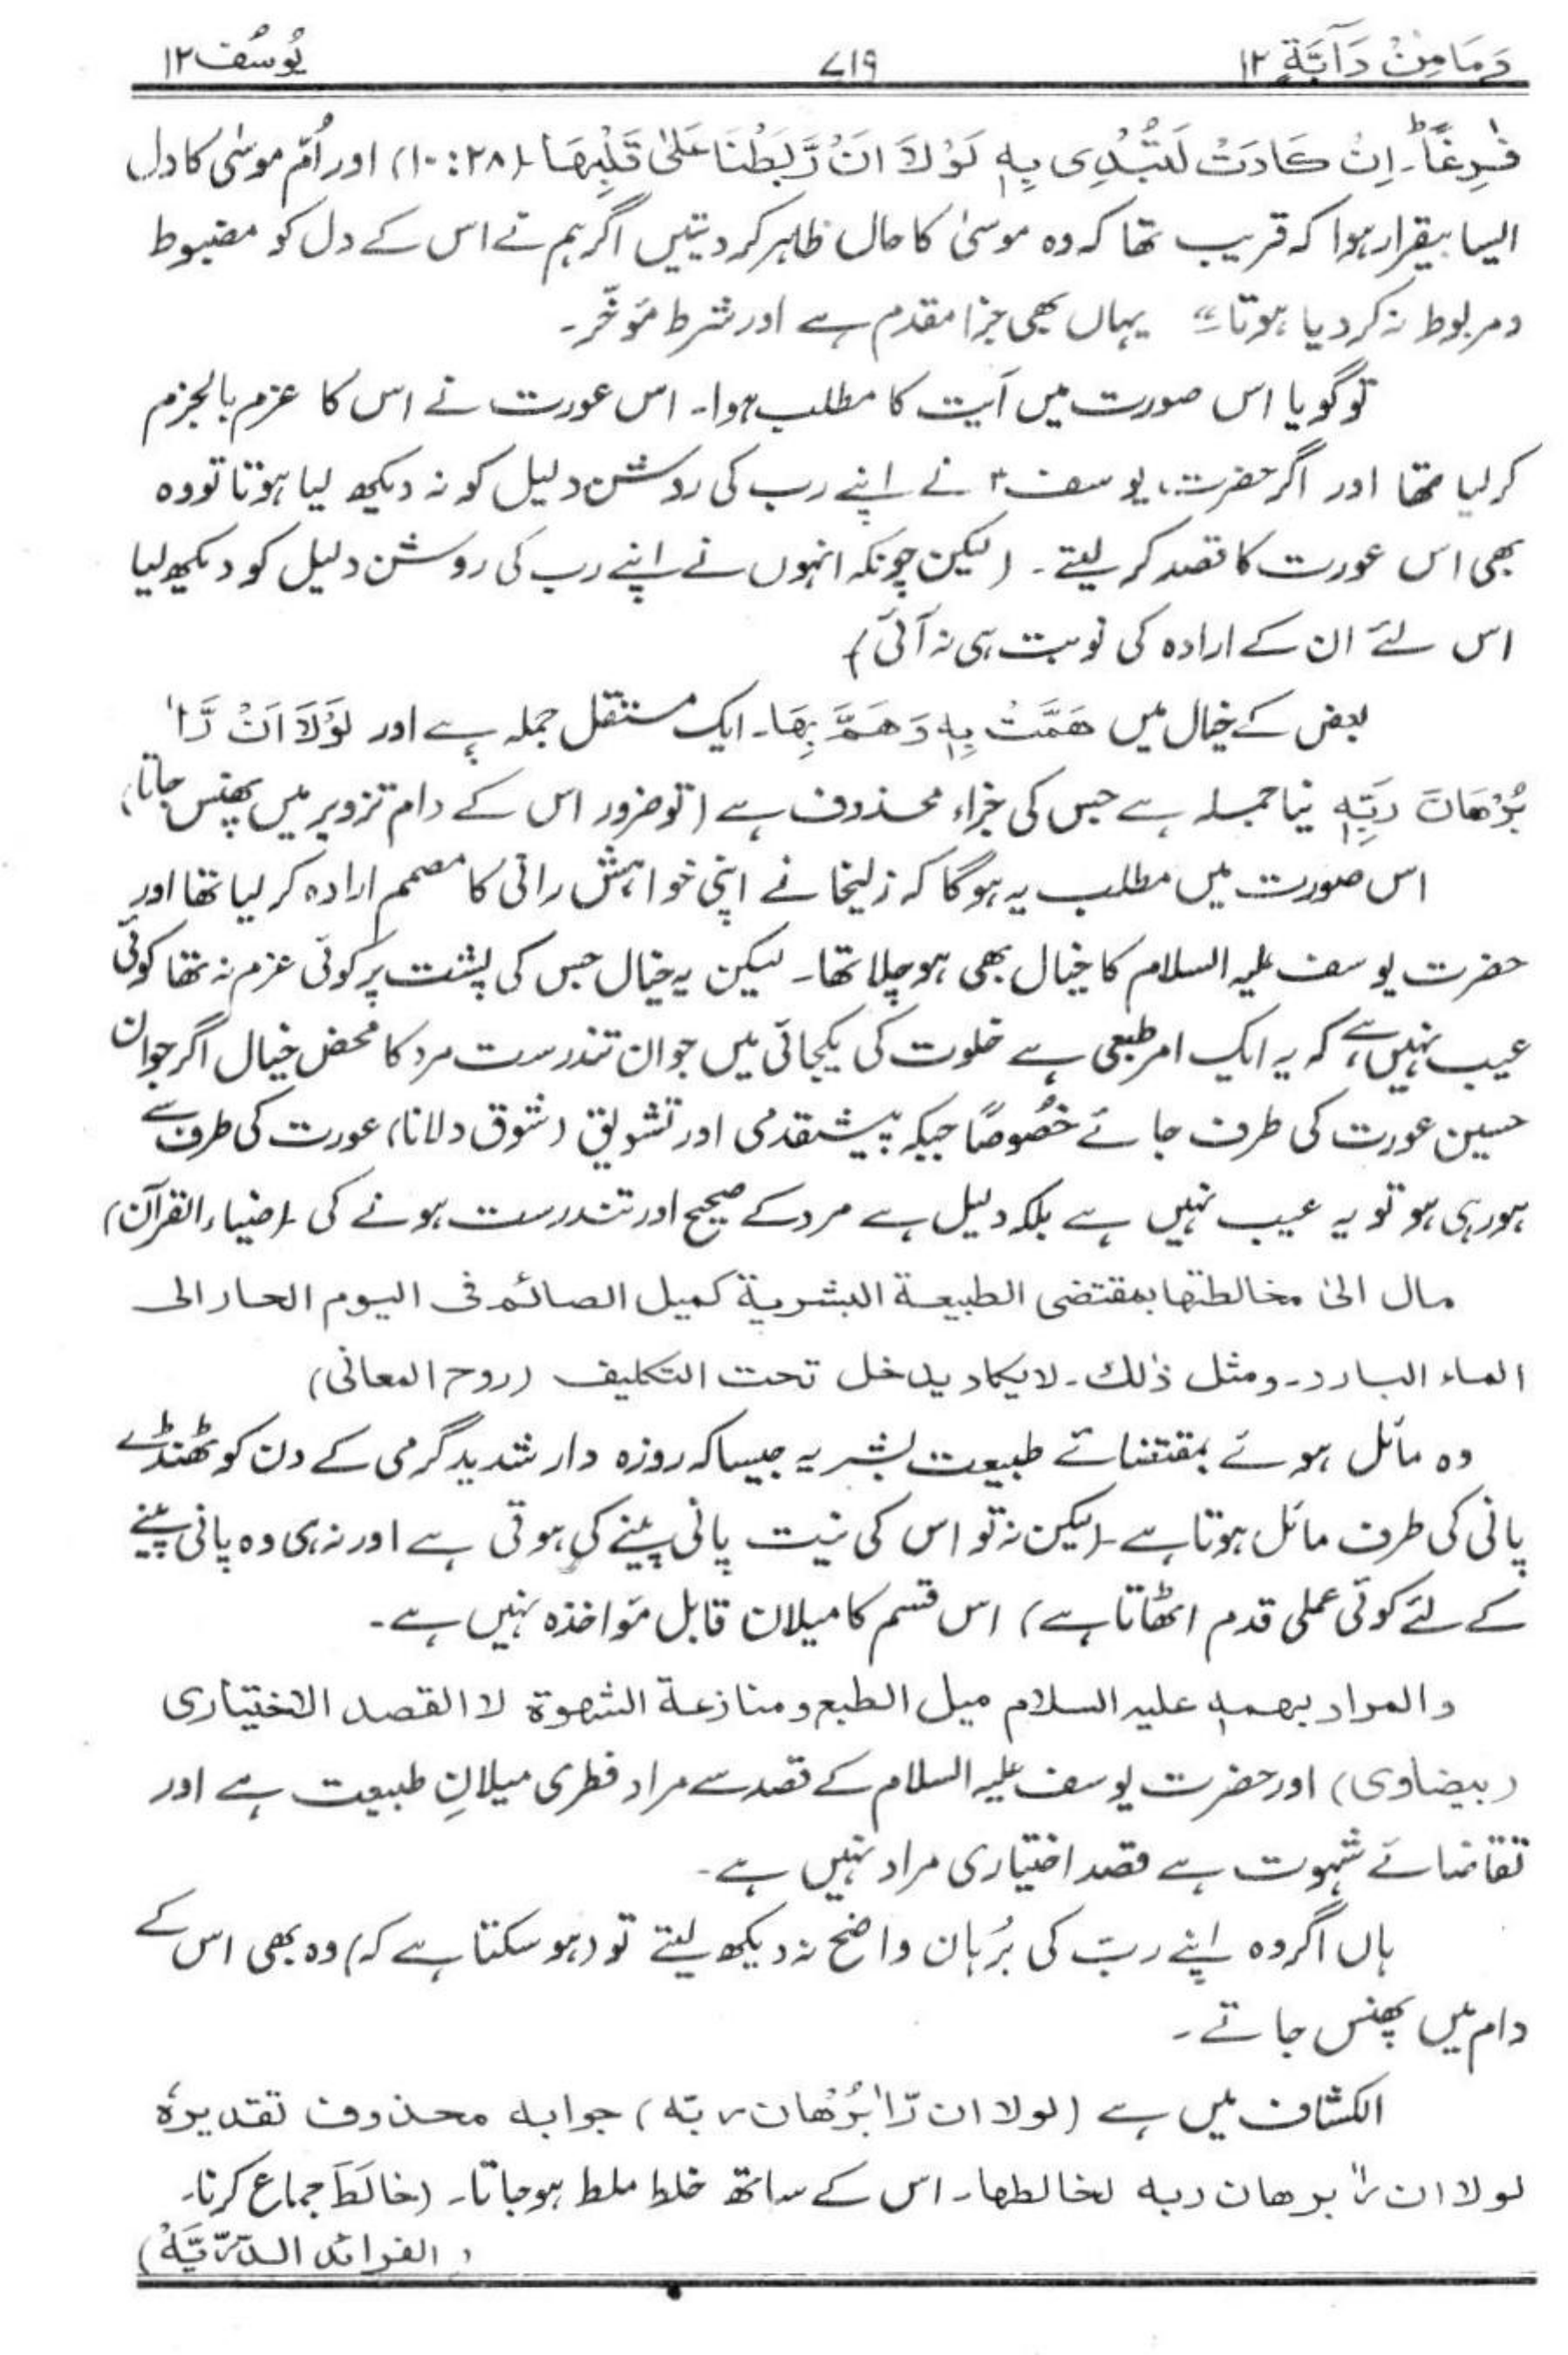 وَمَا مِنْ دَآبَّةٍ ۱۲ ۷۱۹ یُوسُف ۱۲
فٰرِغًا ؕ۔ اِنْ كَادَتْ لَتُبْدِی بِہٖ لَوْلَا اَنْ رَّبَطْنَا عَلٰی قَلْبِھَا۔ (۲۸: ۱۰) اور اُمّ موسیٰ کا دل
ایسا بیقرار ہوا کہ قریب تھا کہ وہ موسیٰ کا حال ظاہر کر دیتیں اگر ہم نے اس کے دل کو مضبوط
و مربوط نہ کر دیا ہوتا۔“ یہاں بھی جزا مقدم ہے اور شرط مؤخّر۔
تو گویا اس صورت میں آیت کا مطلب ہوا۔ اس عورت نے اس کا عزم بالجزم
کر لیا تھا اور اگر حضرت یوسفؑ نے اپنے رب کی روشن دلیل کو نہ دیکھ لیا ہوتا تو وہ
بھی اس عورت کا قصد کر لیتے۔ (لیکن چونکہ انہوں نے اپنے رب کی روشن دلیل کو دیکھ لیا
اس لئے ان کے ارادہ کی نوبت ہی نہ آئی)
بعض کے خیال میں ھَمَّتْ بِہٖ وَھَمَّ بِھَا۔ ایک مستقل جملہ ہے اور لَوْلَا اَنْ رَّاٰ
بُرْھَانَ رَبِّہٖ نیا جملہ ہے جس کی جزاء محذوف ہے (تو ضرور اس کے دام تزویر میں پھنس جاتا)
اس صورت میں مطلب یہ ہوگا کہ زلیخا نے اپنی خواہش رانی کا مصمم ارادہ کر لیا تھا اور
حضرت یوسف علیہ السلام کا خیال بھی ہو چلا تھا۔ لیکن یہ خیال جس کی پشت پر کوئی عزم نہ تھا کوئی
عیب نہیں ہے، کہ یہ ایک امر طبعی ہے خلوت کی یکجائی میں جوان تندرست مرد کا محض خیال اگر جوان
حسین عورت کی طرف جائے خُصُوصًا جبکہ پیشقدمی اور تشویق (شوق دلانا) عورت کی طرف سے
ہو رہی ہو تو یہ عیب نہیں ہے بلکہ دلیل ہے مرد کے صحیح اور تندرست ہونے کی۔ (ضیاء القرآن)
مال الیٰ مخالطتھا بمقتضی الطبیعۃ البشریۃ کمیل الصائم فی الیوم الحار الی
الماء البارد۔ ومثل ذٰلک۔ لا یکاد یدخل تحت التکلیف (روح المعانی)
وہ مائل ہوئے بمقتضائے طبیعت بشریہ جیسا کہ روزہ دار شدید گرمی کے دن کو ٹھنڈے
پانی کی طرف مائل ہوتا ہے۔ (لیکن نہ تو اس کی نیت پانی پینے کی ہوتی ہے اور نہ ہی وہ پانی پینے
کے لئے کوئی عملی قدم اٹھاتا ہے) اس قسم کا میلان قابل مؤاخذہ نہیں ہے۔
والمراد بھمہٖ علیہ السلام میل الطبع ومنازعۃ الشھوۃ لا القصد الاختیاری
(بیضاوی) اور حضرت یوسف علیہ السلام کے قصد سے مراد فطری میلانِ طبیعت ہے اور
تقاضائے شہوت ہے قصد اختیاری مراد نہیں ہے۔
ہاں اگر وہ اپنے ربّ کی بُرہان واضح نہ دیکھ لیتے تو (ہو سکتا ہے کہ) وہ بھی اس کے
دام میں پھنس جاتے۔
الکشّاف میں ہے (لولا ان رّاٰ بُرْھان ربّہ) جوابہ محذوف تقدیرہٗ
لولا ان رّاٰ برھان ربہ لخالطھا۔ اس کے ساتھ خلط ملط ہو جاتا۔ (خالَطَ جماع کرنا۔
(الفرائد الدّرّیّۃ)